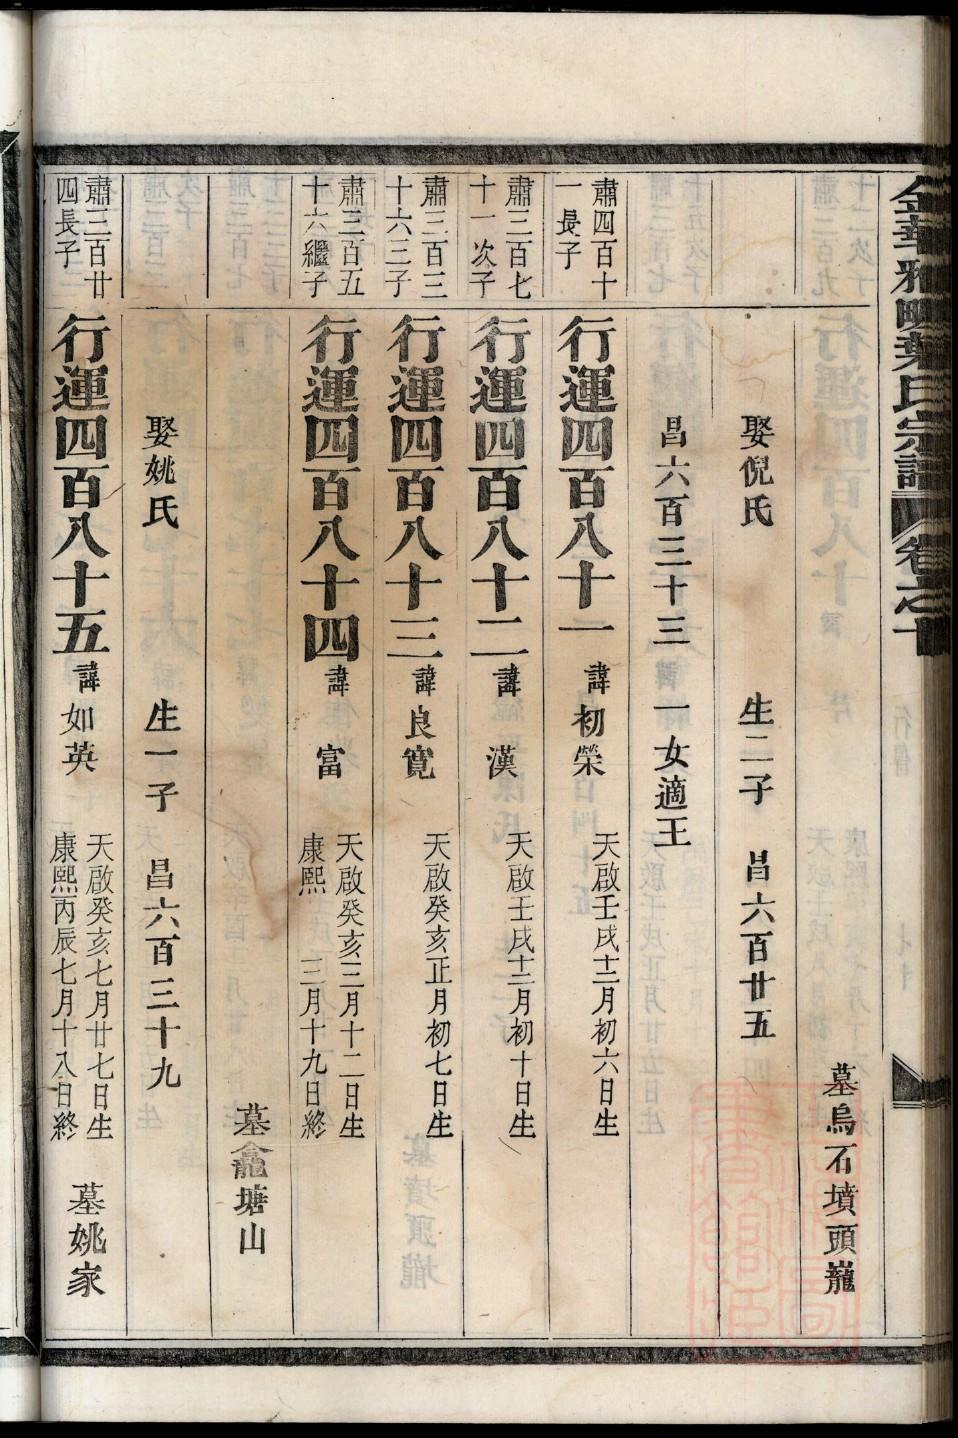 金華雅畈葉氏宗譜 卷之十
墓烏石墳頭巃
娶倪氏 生二子 昌六百廿五
昌六百三十三 一女適王
肅四百十
一長子
行運四百八十一 諱初榮 天啟壬戌十二月初六日生
肅三百七
十一次子
行運四百八十二 諱漢 天啟壬戌十二月初十日生
肅三百三
十六三子
行運四百八十三 諱良寬 天啟癸亥正月初七日生
肅三百五
十六繼子
行運四百八十四 諱富 天啟癸亥三月十二日生
康熙 三月十九日終
墓龕塘山
娶姚氏 生一子 昌六百三十九
肅三百廿
四長子
行運四百八十五 諱如英 天啟癸亥七月廿七日生
康熙丙辰七月十八日終
墓姚家